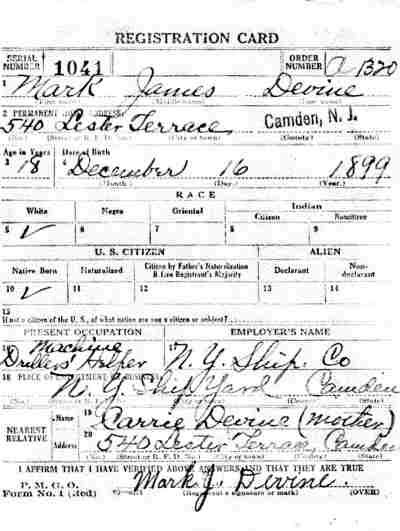 REGISTRATION CARD
SERIAL NUMBER 1041 ORDER NUMBER A 1320
1 Mark James Devine
(First name) (Middle name) (Last name)
2 PERMANENT HOME ADDRESS:
540 Lester Terrace, Camden, N. J.
(No.) (Street or R. F. D. No.) (City or town) (County) (State)
Age in Years Date of Birth
3 18 4 December 16 1899
(Month.) (Day.) (Year.)
RACE
White Negro Oriental Indian
Citizen Noncitizen
5 ✓ 6 7 8 9
U. S. CITIZEN ALIEN
Native Born Naturalized Citizen by Father's Naturalization Before Registrant's Majority Declarant Non-declarant
10 ✓ 11 12 13 14
15
If not a citizen of the U. S., of what nation are you a citizen or subject?
PRESENT OCCUPATION EMPLOYER'S NAME
16 Machine Drillers Helper 17 N. Y. Ship. Co
18 PLACE OF EMPLOYMENT OR BUSINESS:
N. Y. Ship Yard, Camden
(No.) (Street or R. F. D. No.) (City or town) (County) (State)
NEAREST RELATIVE Name 19 Carrie Devine (mother)
Address 20 540 Lester Terrace, Camden
(No.) (Street or R. F. D. No.) (City or town) (County) (State)
I AFFIRM THAT I HAVE VERIFIED ABOVE ANSWERS AND THAT THEY ARE TRUE
P. M. G. O.
Form No. 1 (Red) Mark J. Devine
(Registrant's signature or mark) (OVER)